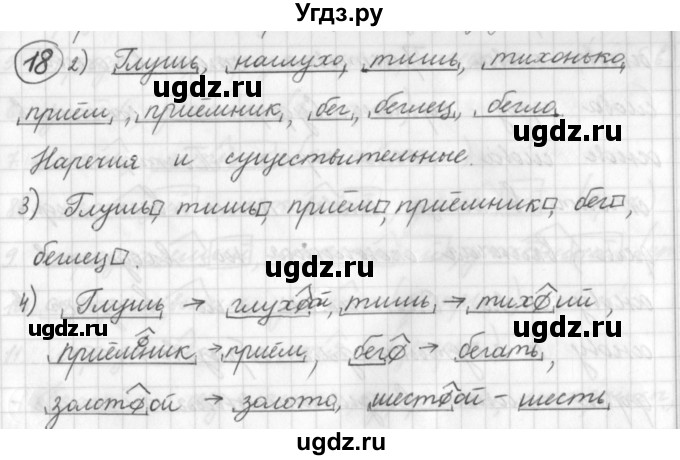 Угдз.ру
18 2) Глушь, наглухо, тишь, тихонько,
ugdz.ru ugdz.ru
приём, приёмник, бег, беглец, бегло.
ugdz.ru
Наречия и существительные.
3) Глушь, тишь, приём, приёмник, бег,
беглец.
ugdz.ru ugdz.ru
4) Глушь → глухой, тишь → тихий,
ugdz.ru ugdz.ru
приёмник → приём, бег → бегать,
ugdz.ru
золотой → золото, шестой - шесть
ugdz.ru